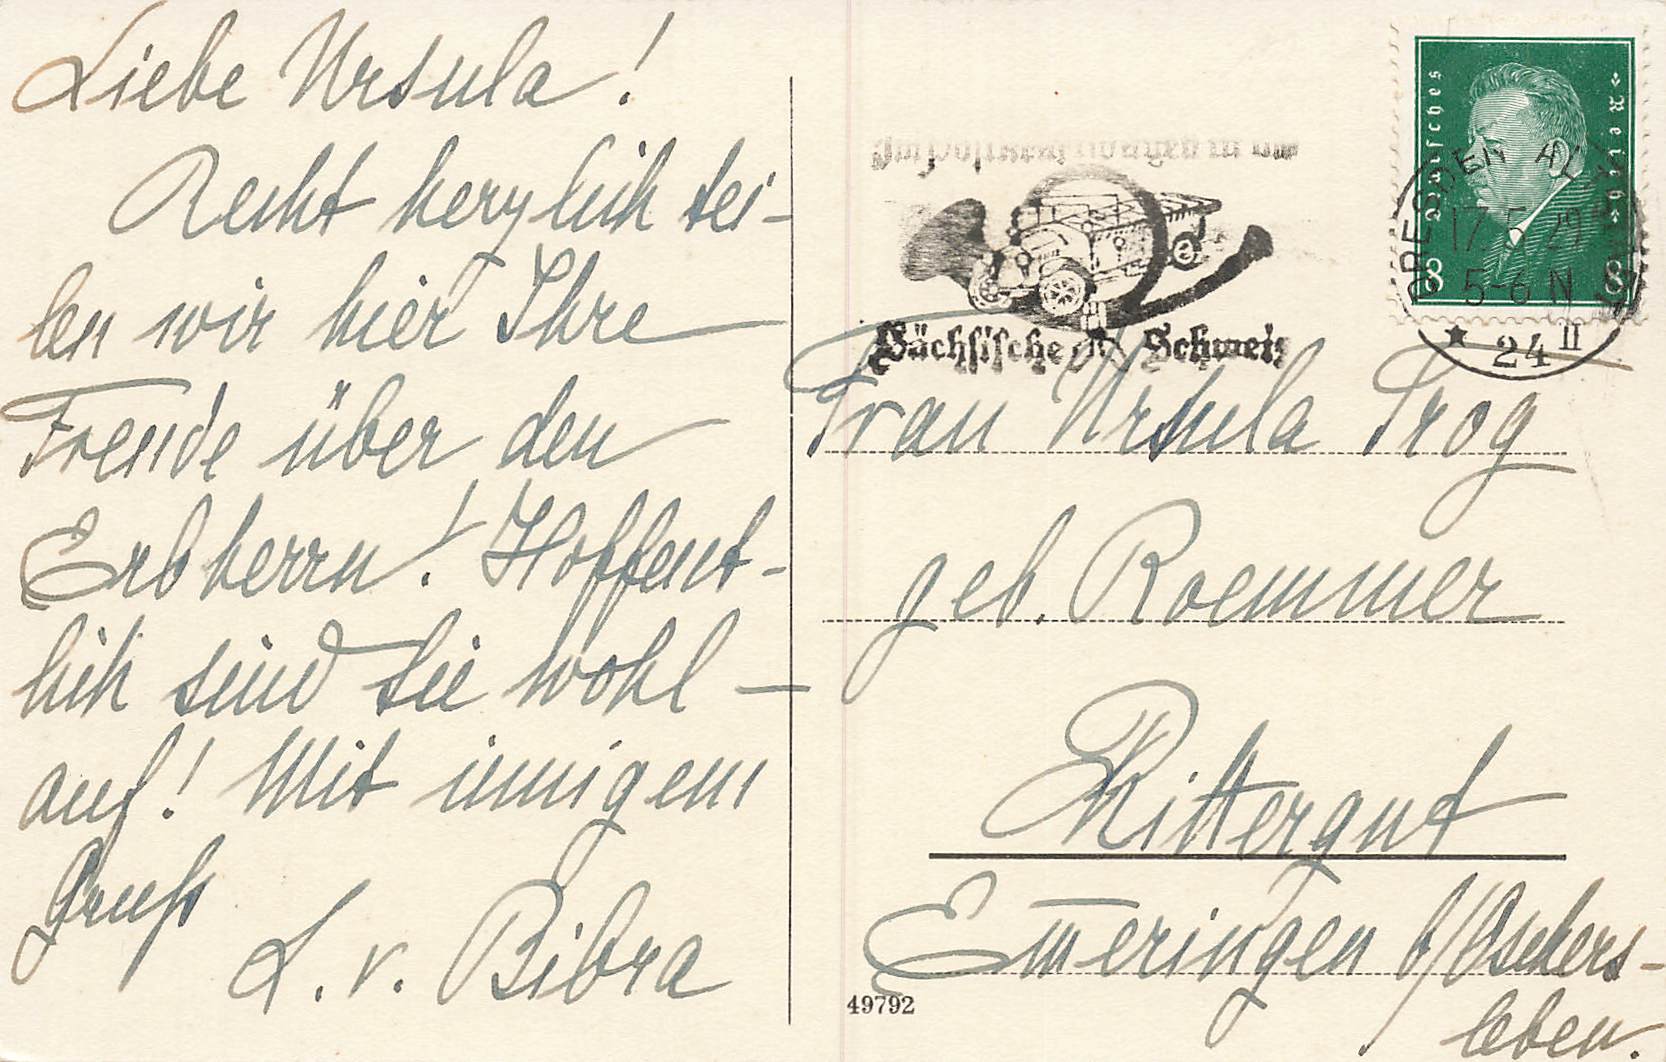 Liebe Ursula!
Recht herzlich tei-
len wir hier Ihre
Freude über den
Erbherrn! Hoffent-
lich sind Sie wohl-
auf! Mit innigem
Gruß
L. v. Bibra
Deutsches Reich
8 8
DRESDEN AL
17. 5. 29
5-6 N
* 24 II
Sächsische Schweiz
Frau Ursula Trog
geb. Roemmer
Rittergut
Em̅eringen b/Oschers-
leben.
49792